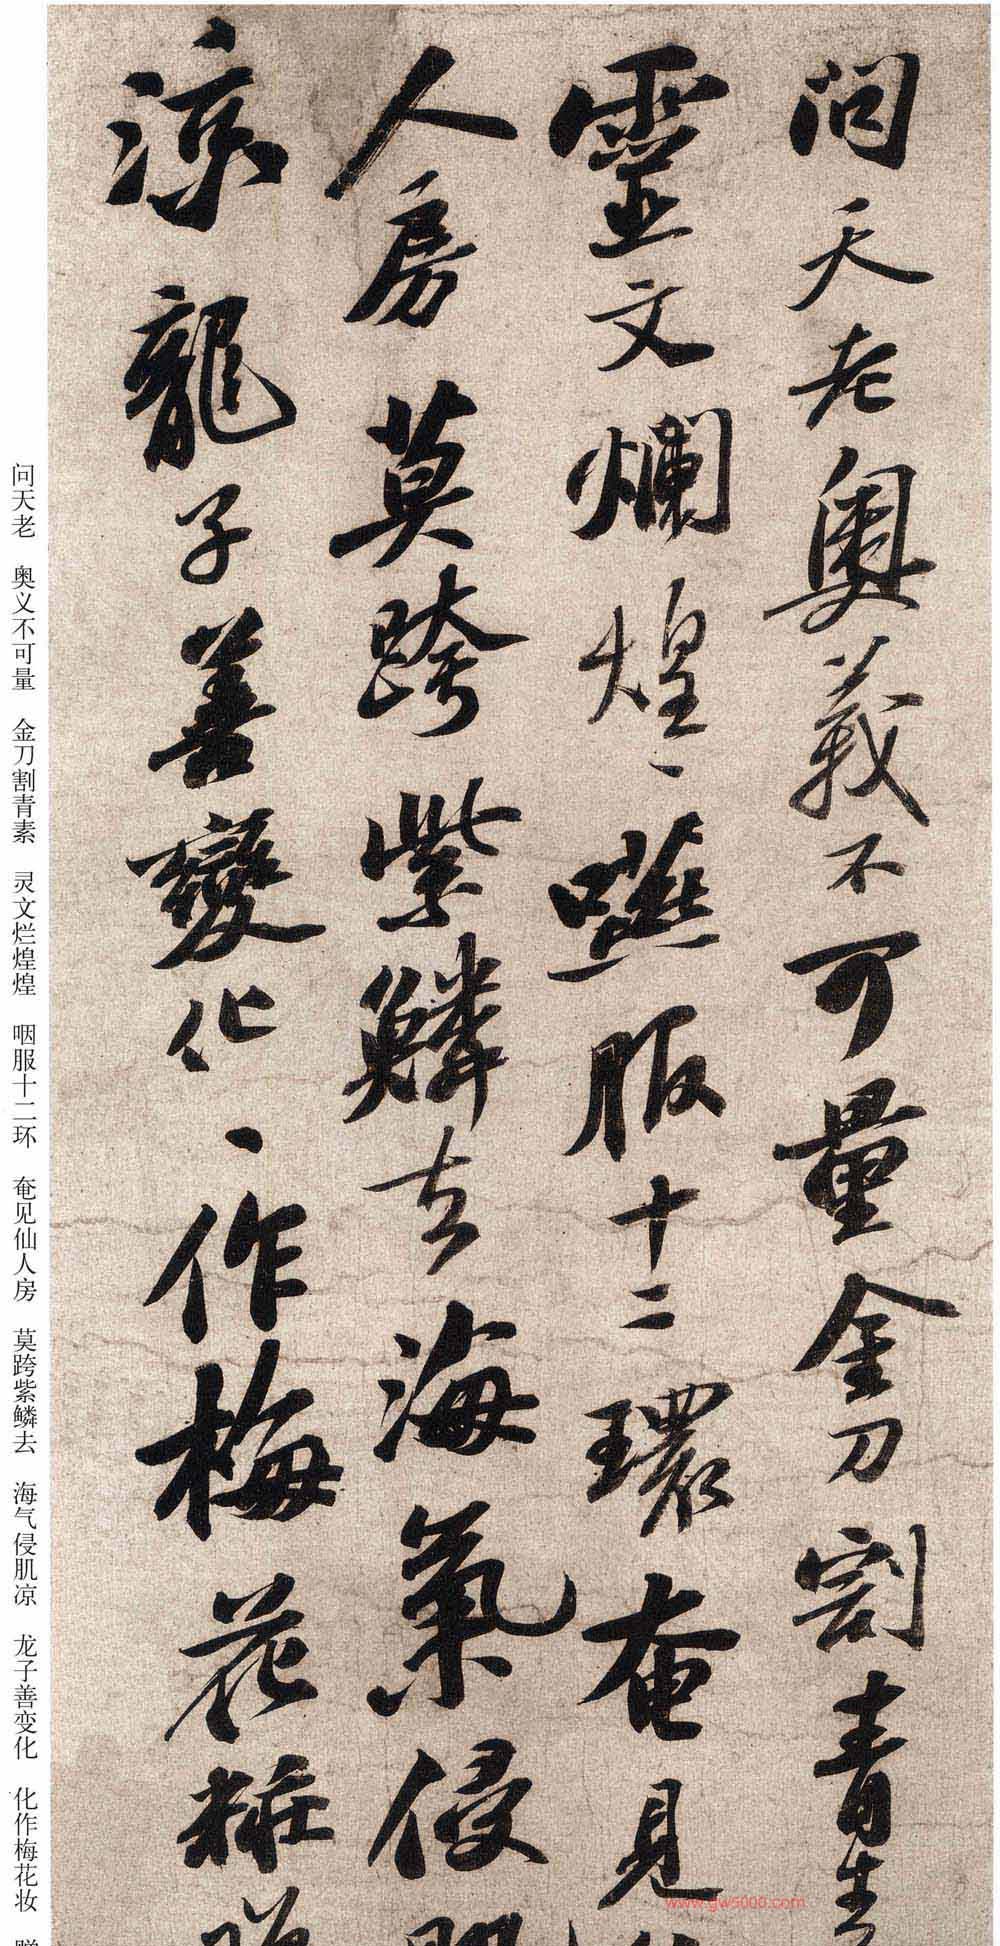 问天老奥義不可量金刀割青素
靈文爛煌、嚥服十二環奄見仙
人房莫跨紫鱗去海氣侵肌
涼龍子善變化、作梅花粧贈
问天老 奥义不可量 金刀割青素 灵文烂煌煌 咽服十二环 奄见仙人房 莫跨紫鳞去 海气侵肌凉 龙子善变化 化作梅花妆 赠
www.gw5000.com